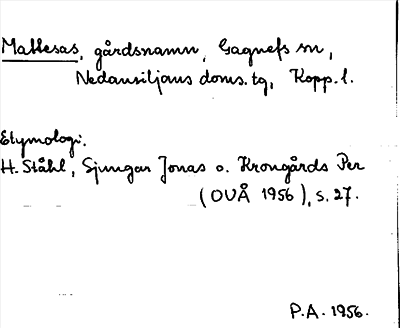 Mattesas, gårdsnamn, Gagnefs sn,
Nedansiljans doms. tg, Kopp. l.
Etymologi.
H. Ståhl, Sjungar Jonas o. Krongårds Per
(OUÅ 1956), s. 27.
P.A. 1956.